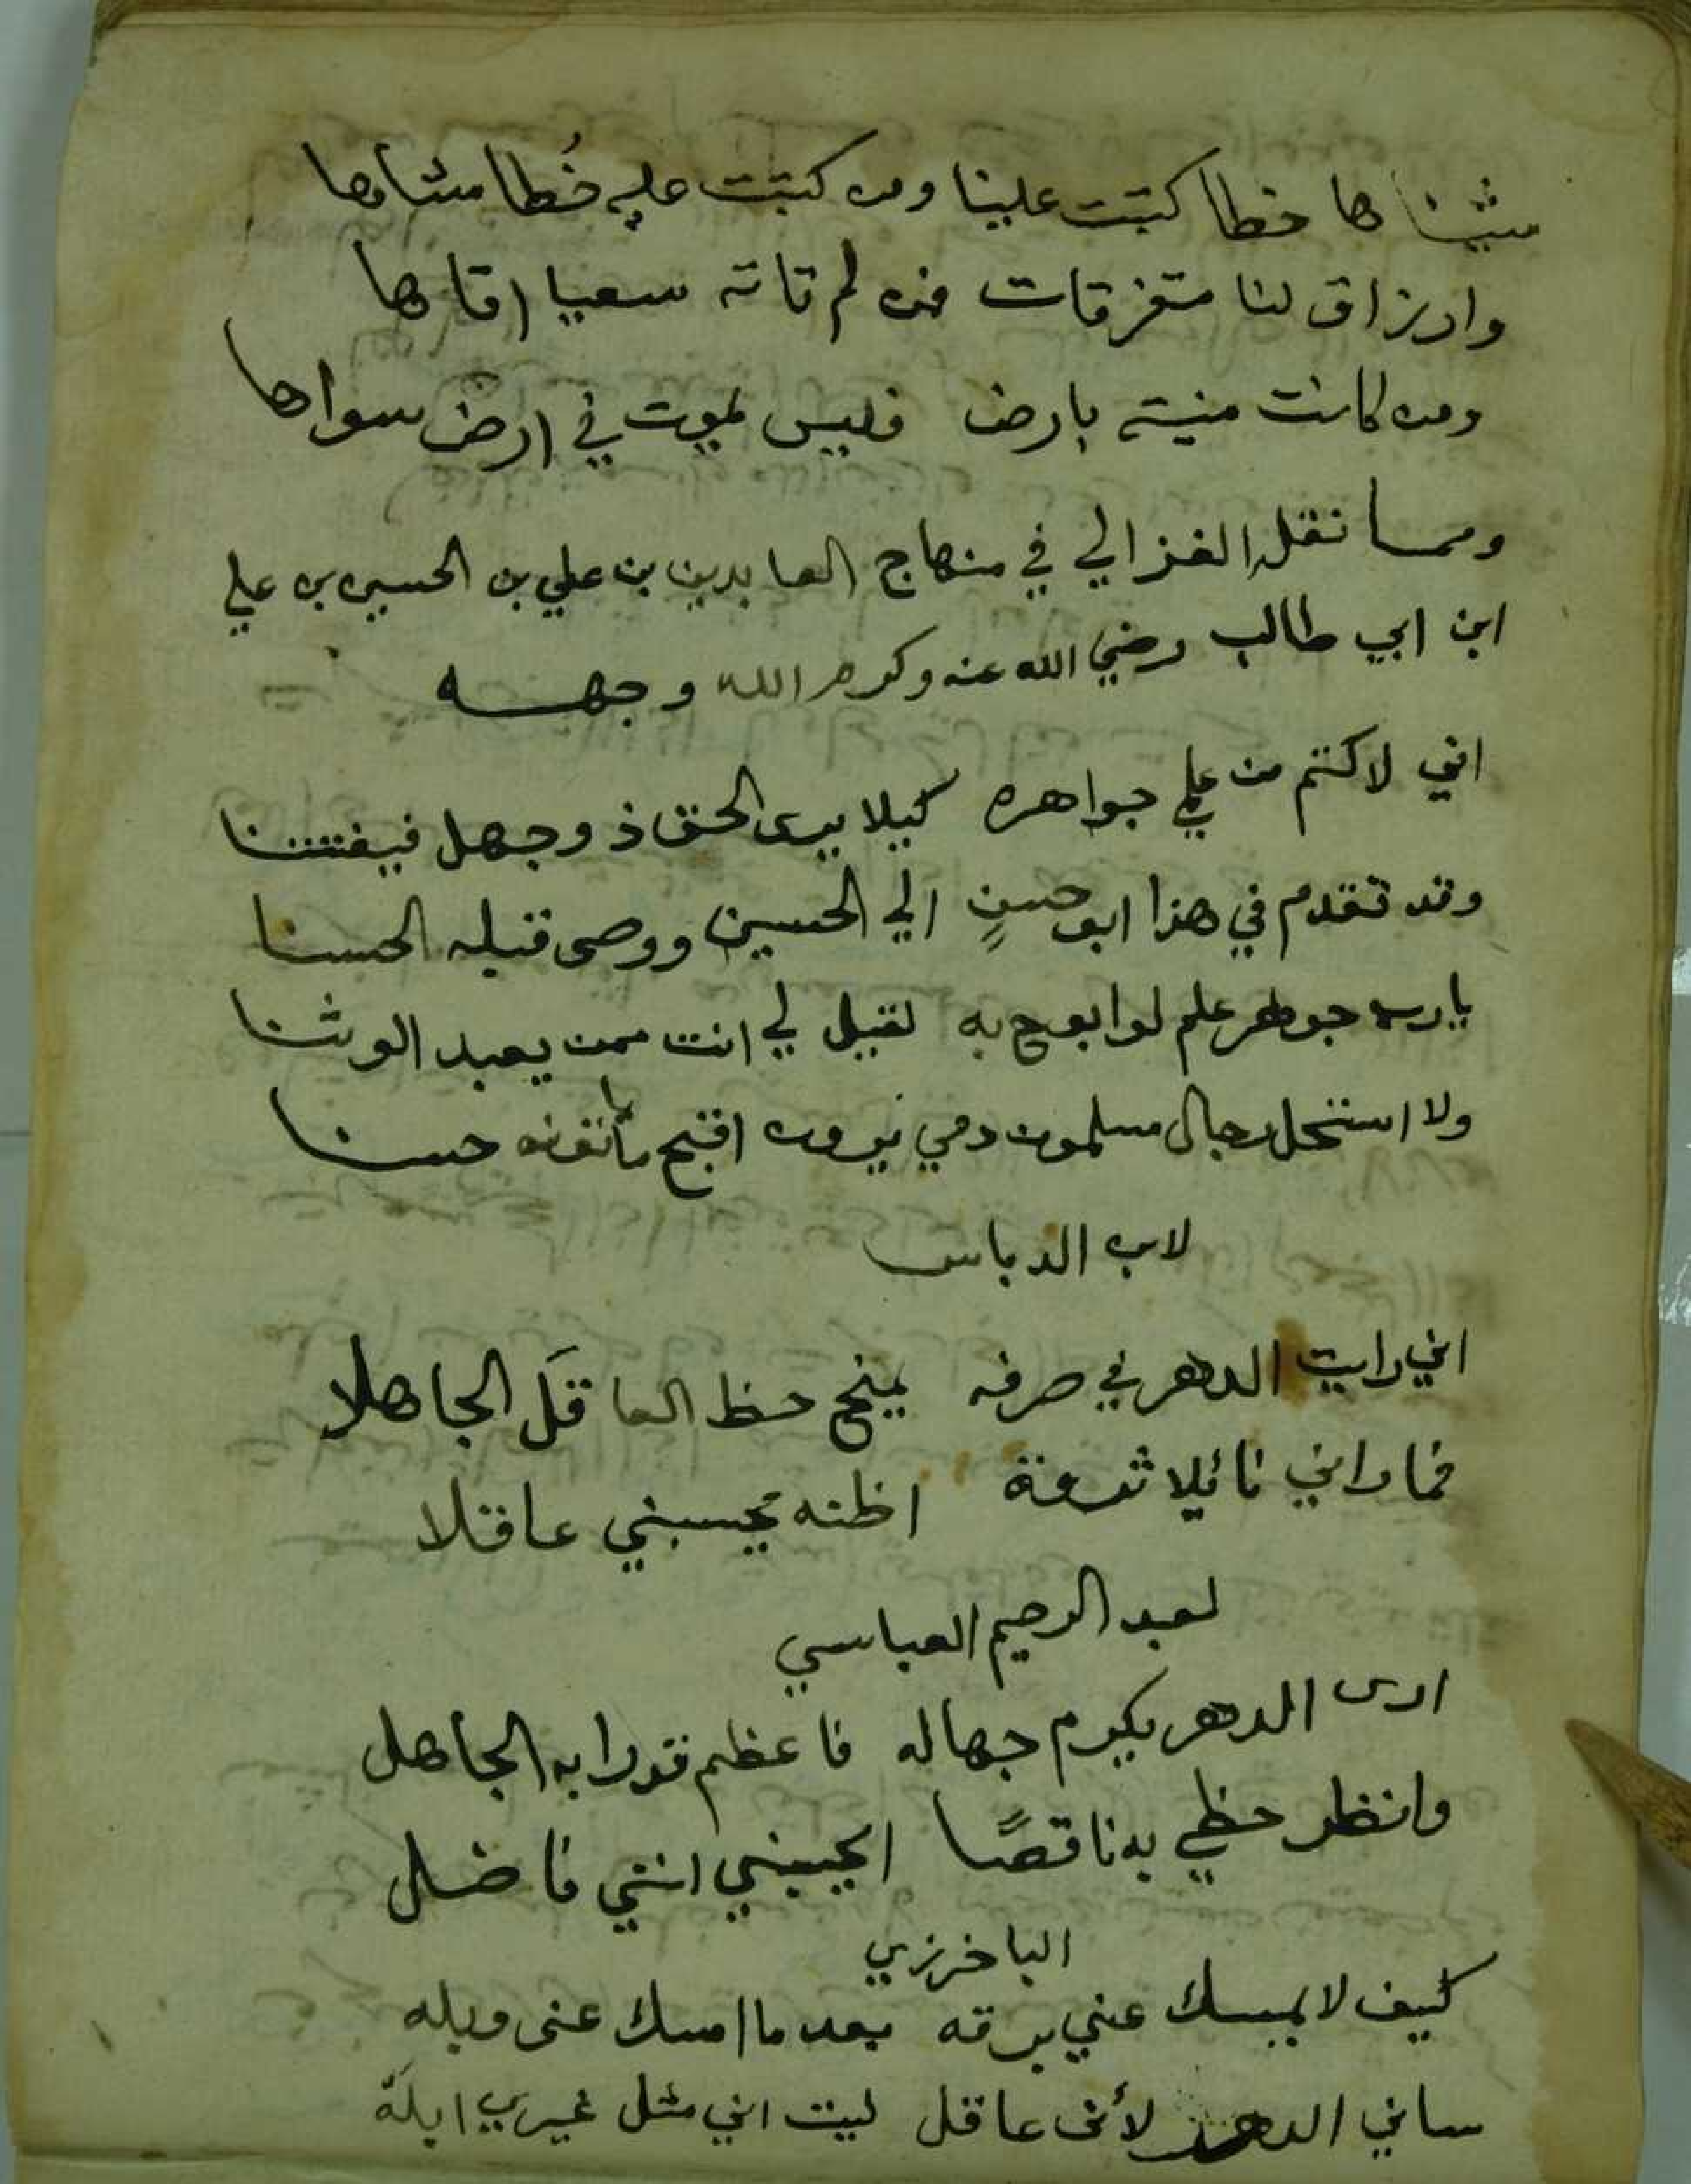 مشيناها خطا كتبت علينا ومن كتبت عليه خُطا مشاها
وارزاق لنا متفرقات فمن لم تاته سعيا اتاها
ومن كانت منيته بارض فليس يموت في ارض سواها
ومما نقله الغزالي في منهاج العابدين بن علي بن الحسين بن علي
ابن ابي طالب رضي الله عنه وكرم الله وجهه
اني لاكتم من علمي جواهره كيلا يرى الحق ذو جهل فيفتننا
وقد تقدم في هذا ابو حسنٍ الي الحسين ووصى قبله الحسنا
يا رب جوهر علم لو ابوح به لقيل لي انت ممن يعبد الوثنا
ولا استحل رجال مسلمون دمي يرون اقبح ما ياتونه حسنا
لابن الدباس
اني رايت الدهر في صرفه يمنح حظ العاقَل الجاهلا
فما راني نائلا ثروة اظنه يحسبني عاقلا
لعبد الرحيم العباسي
ارى الدهر يكرم جهاله فاعظم قدرا به الجاهل
وانظر حظي به ناقصًا ايحسبني انني فاضل
الباخرزي
كيف لا يمسك عني برقه بعد ما امسك عنى وبله
ساني الدهر لأنى عاقل ليت اني مثل غيري ابله